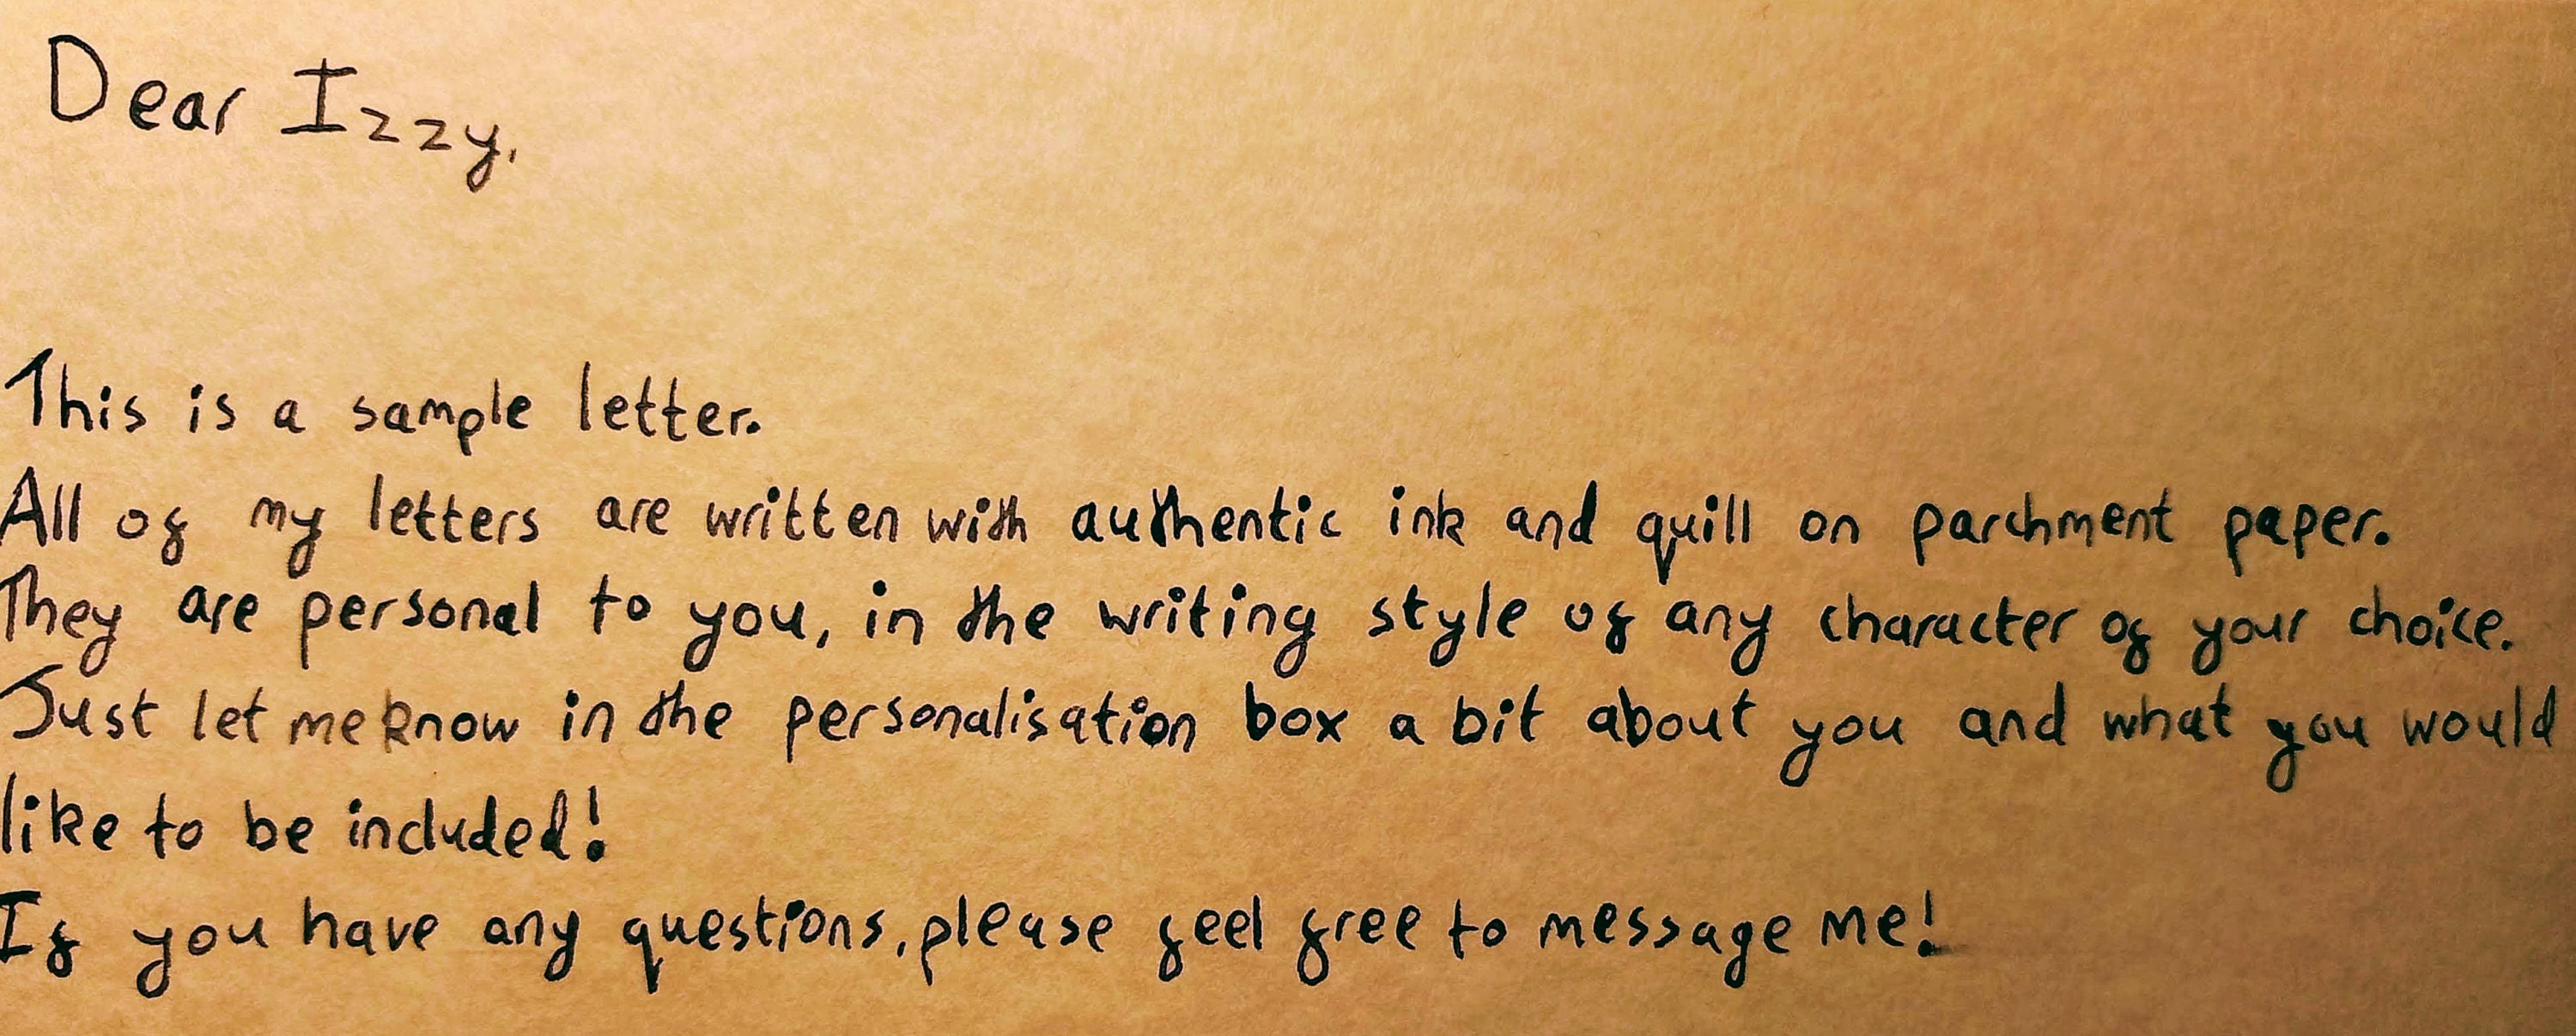 Dear Izzy,
This is a sample letter.
All of my letters are written with authentic ink and quill on parchment paper.
They are personal to you, in the writing style of any character of your choice.
Just let me know in the personalisation box a bit about you and what you would
like to be included!
If you have any questions, please feel free to message me!